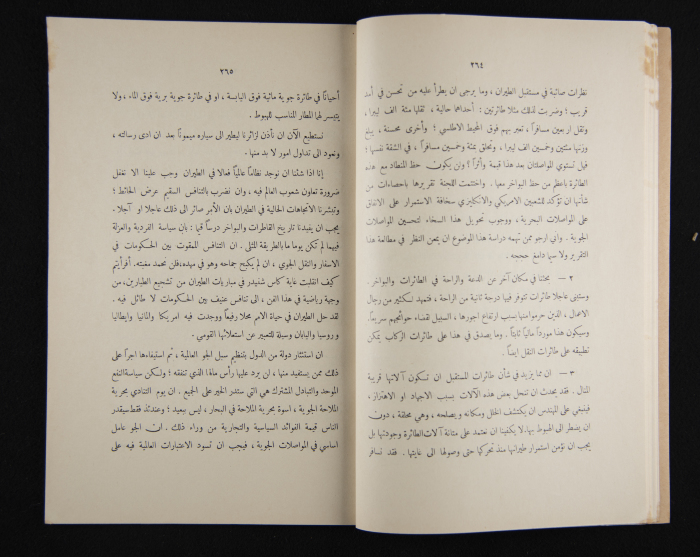 ٢٦٤
نظرات صائبة في مستقبل الطيران ، وما يرجى ان يطرأ عليه من تحسن في أمد
قريب ؛ وضربت لذلك مثلا طائرتين : أحداهما حالية ، ثقلها مئة الف ليبرا ،
وتقل اربعين مسافراً ، تعبر بهم فوق المحيط الاطلسي ؛ وأخرى محسنة ، يبلغ
وزنها مئتين وخمسين الف ليبرا ، وتحلق بمئة وخمسين مسافراً ، في الشقة نفسها ؛
قبل تستوي المواصلتان بعد هذا قيمة وأثراً ؟ ولن يكون حظ المنطاد مع هذه
الطائرة باعظم من حظ البواخر معها . واختتمت اللجنة تقريرها باحصاءات من
شأنها ان تؤكد للشعبين الامريكي والانكليزي سخافة الاستمرار على الانفاق
على المواصلات البحرية ، ووجوب تحويل هذا السخاء لتحسين المواصلات
الجوية . واني ارجو ممن تهمه دراسة هذا الموضوع ان يمعن النظر في مطالعة هذا
التقرير ولا سيما دامغ حججه .
٢ — بحثنا في مكان آخر عن الدعة والراحة في الطائرات والبواخر .
وستبنى عاجلا طائرات تتوفر فيها درجة ثانية من الراحة ، فتمهد لكثير من رجال
الاعمال ، الذين حرموا منها بسبب ارتفاع اجورها ، السبيل لقضاء حوائجهم سريعاً.
وسيكون هذا مورداً مالياً ثابتاً . وما يصدق في هذا على طائرات الركاب يمكن
تطبيقه على طائرات النقل ايضاً .
٣ — ان مما يزيد في شأن طائرات المستقبل ان تكون آلاتها قريبة
المنال . فقد يحدث ان تتعطل بعض هذه الآلات بسبب الاجهاد او الاهتزاز ،
فينبغي على المهندس ان يكتشف الخلل ومكانه ويصلحه ، وهي محلقة ، دون
ان يضطر الى الهبوط بها. لا يكفينا ان نعتمد على متانة آلات الطائرة وجودتها بل
يجب ان نؤمن استمرار طيرانها منذ تحركها حتى وصولها الى غايتها . فقد نسافر
٢٦٥
أحياناً في طائرة جوية مائية فوق اليابسة ، او في طائرة جوية برية فوق الماء ، ولا
يتيسر لها المطار المناسب للهبوط .
نستطيع الآن ان نأذن لزائرنا ليطير الى سياره ميموناً بعد ان ادى رسالته ،
ونعود الى تداول امور لا بد منها .
إنا اذا شئنا ان نوجد نظاماً عالمياً فعالا في الطيران وجب علينا الا نغفل
ضرورة تعاون شعوب العالم فيه ، وان نضرب بالتنافس السقيم عرض الحائط ؛
وتبشرنا الاتجاهات الحالية في الطيران بان الأمر صائر الى ذلك عاجلا او آجلا .
يجب ان يفيدنا تاريخ القاطرات والبواخر درساً قيما : بان سياسة الفردية والعزلة
فيهما لم تكن يوما ما بالطريقة المثلى . ان التنافس الممقوت بين الحكومات في
الاسفار والنقل الجوي ، ان لم يكبح جماحه وهو في مهده، فلن تحمد مغبته. أفرأيتم
كيف انقلبت غاية كأس شنيدر في مباريات الطيران من تشجيع الطيارين، من
وجهة رياضية في هذا الفن ، الى تنافس عنيف بين الحكومات لا طائل فيه .
لقد حل الطيران في حياة الامم محلا رفيعاً ووجدت فيه امريكا والمانيا وايطاليا
وروسيا واليابان وسيلة للتعبير عن استعلائها القومي .
ان استئثار دولة من الدول بتنظيم سبل الجو العالمية ، ثم استيفاءها اجراً على
ذلك ممن يستفيد منها ، لن يرد عليها رأس مالها الذي تنفقه ؛ ولكن سياسة النفع
الموحد والتبادل المشترك هي التي ستدر الخير على الجميع . ان يوم التنادي بحرية
الملاحة الجوية ، اسوة بحرية الملاحة في البحار ، ليس ببعيد ؛ وعندئذ فقط سيقدر
الناس قيمة الفوائد السياسية والتجارية من وراء ذلك . ان الجو عامل
اساسي في المواصلات الجوية ، فيجب ان تسود الاعتبارات العالمية فيه على